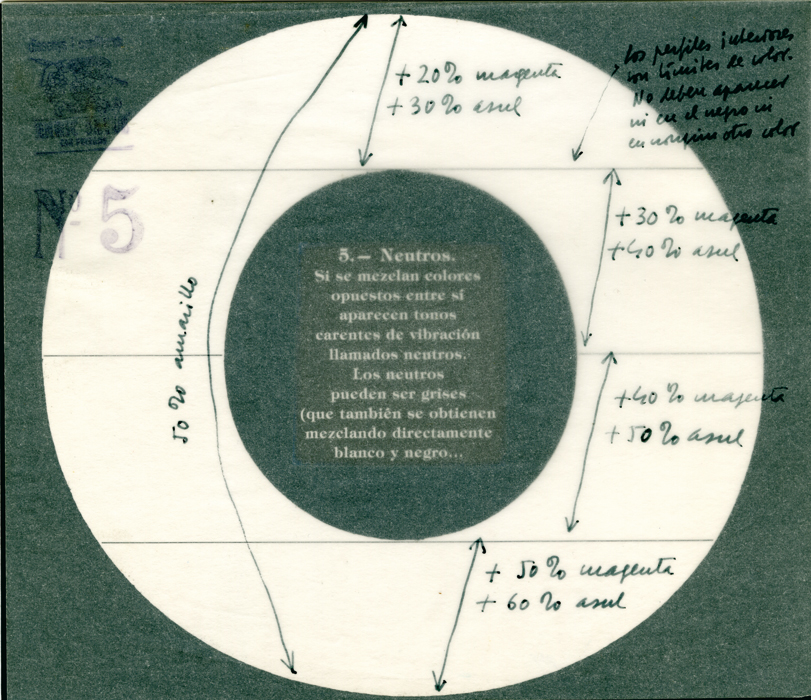 + 20% magenta
+ 30% asul
Los perfiles interiores
son límites de color.
No deben aparecer
ni en el negro ni
en ningún otro color
Nº 5
+ 30% magenta
+ 40% asul
5.— Neutros.
Si se mezclan colores
opuestos entre sí
aparecen tonos
carentes de vibración
llamados neutros.
Los neutros
pueden ser grises
(que también se obtienen
mezclando directamente
blanco y negro...
50% amarillo
+ 40% magenta
+ 50% asul
+ 50% magenta
+ 60% asul